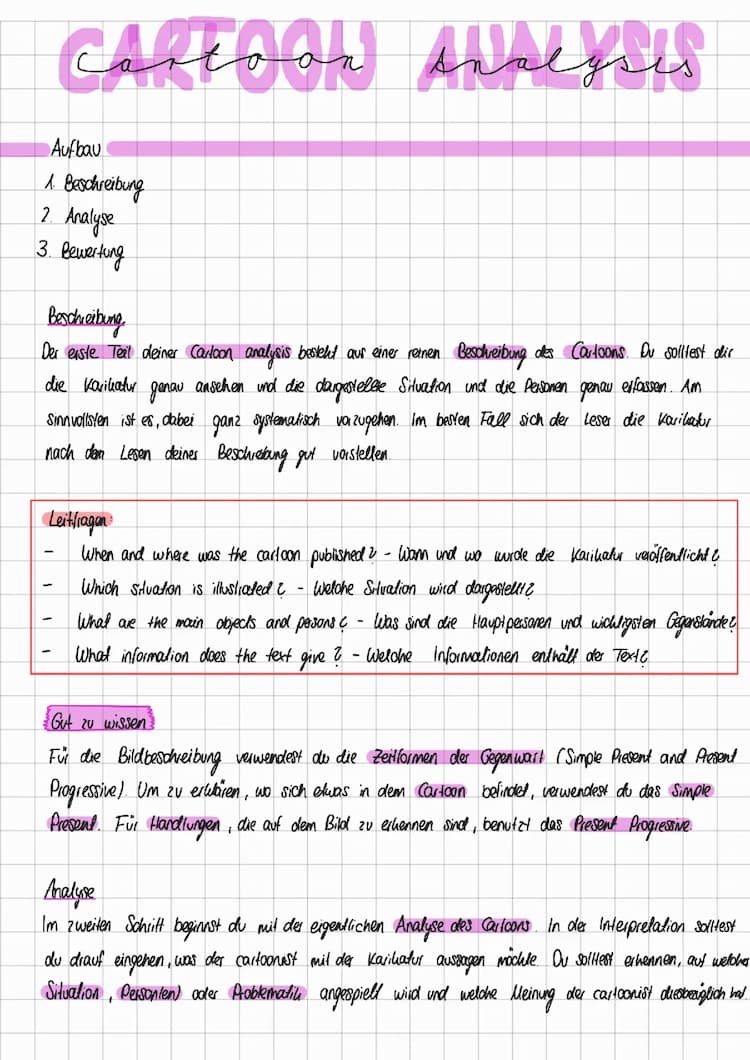 CARTOON ANALYSIS
Cartoon Analysis
Aufbau
1. Beschreibung
2. Analyse
3. Bewertung
Beschreibung
Der erste Teil deiner Cartoon analysis besteht aus einer reinen Beschreibung des Cartoons. Du solltest dir
die Karikatur genau ansehen und die dargestellte Situation und die Personen genau erfassen. Am
sinnvollsten ist es, dabei ganz systematisch vorzugehen. Im besten Fall sich der Leser die Karikatur
nach dem Lesen deiner Beschreibung gut vorstellen.
Leitfragen
- When and where was the cartoon published? - Wann und wo wurde die Karikatur veröffentlicht?
- Which situation is illustrated? - Welche Situation wird dargestellt?
- What are the main objects and persons? - Was sind die Hauptpersonen und wichtigsten Gegenstände?
- What information does the text give? - Welche Informationen enthält der Text?
Gut zu wissen
Für die Bildbeschreibung verwendest du die Zeitformen der Gegenwart (Simple Present and Present
Progressive). Um zu erklären, wo sich etwas in dem Cartoon befindet, verwendest du das Simple
Present. Für Handlungen, die auf dem Bild zu erkennen sind, benutzt das Present Progressive.
Analyse
Im zweiten Schritt beginnst du mit der eigentlichen Analyse des Cartoons. In der Interpretation solltest
du drauf eingehen, was der cartoonist mit der Karikatur aussagen möchte. Du solltest erkennen, auf welche
Situation, Person(en) oder Problematik angespielt wird und welche Meinung der cartoonist diesbezüglich hat.